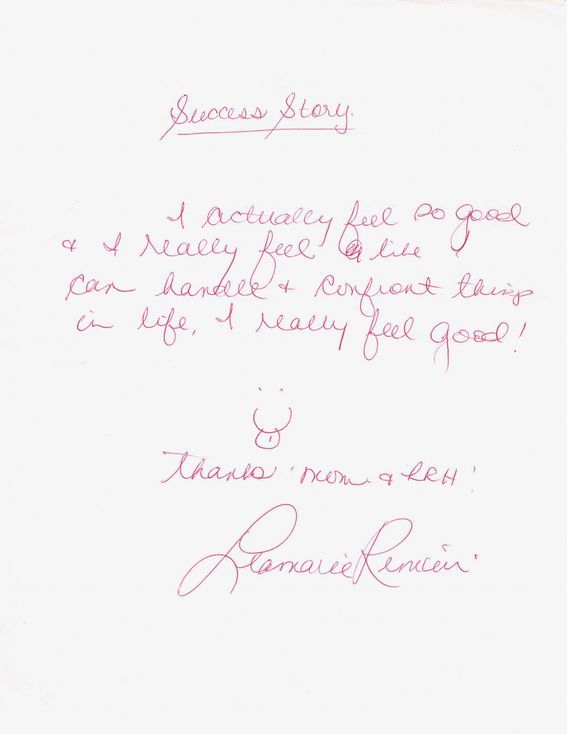 Success Story.
I actually feel so good
& I really feel like I
can handle & confront things
in life, I really feel good!
Thanks mom & LRH!
Leamarie Remini